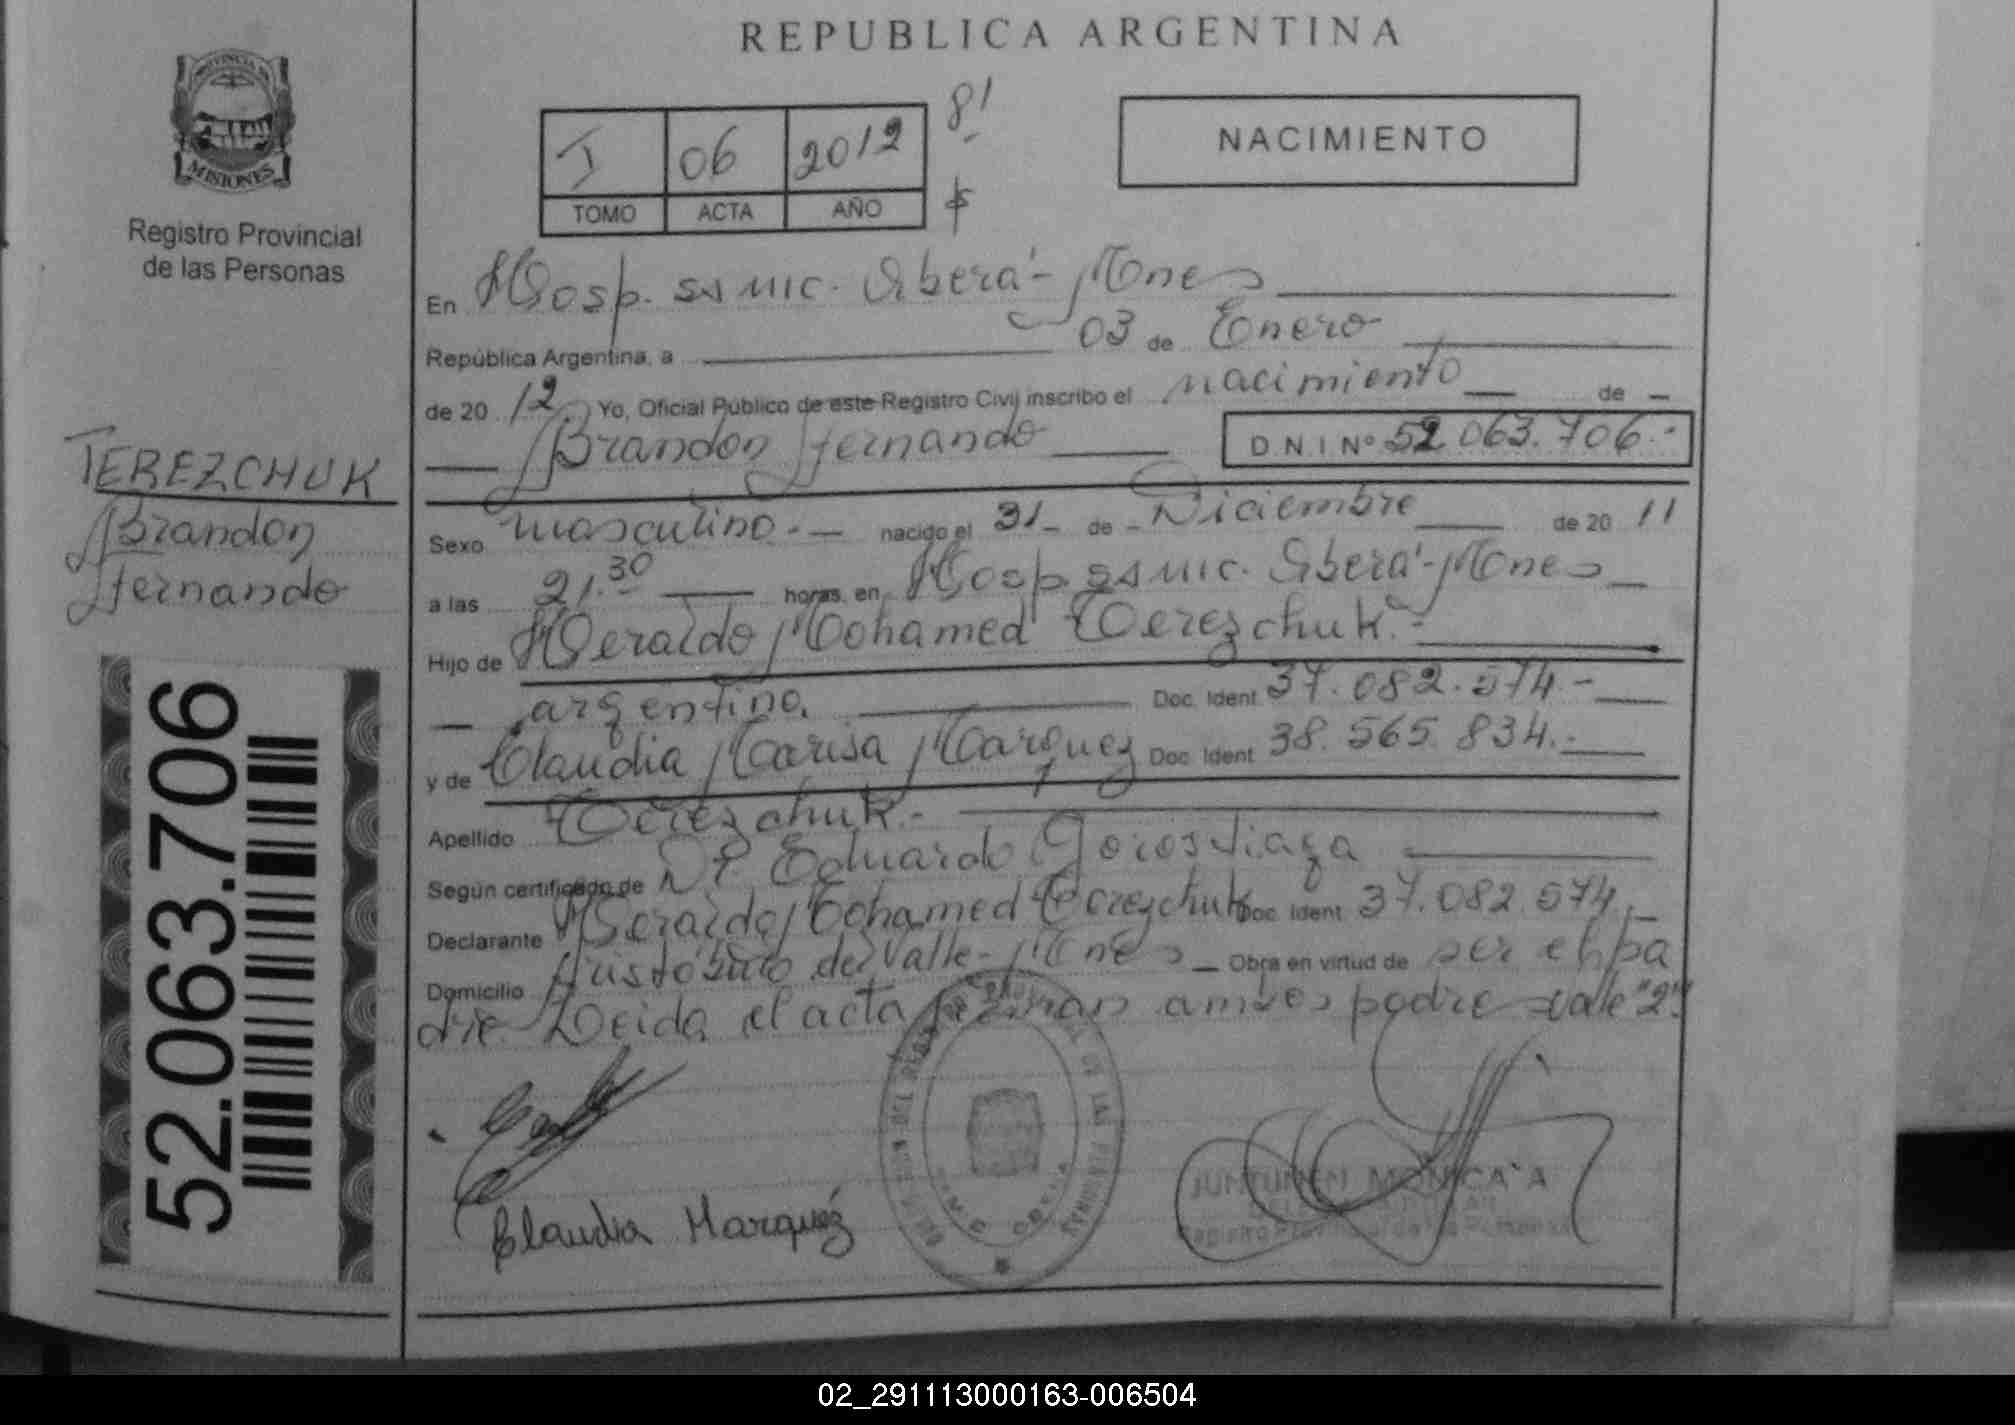 REPUBLICA ARGENTINA
PROVINCIA DE
MISIONES
Registro Provincial
de las Personas
I 06 2012 8!
TOMO ACTA AÑO
NACIMIENTO
En Hosp. ss mic. Oberá - Mones
República Argentina, a 03 de Enero
de 20 12 Yo, Oficial Público de este Registro Civil inscribo el nacimiento de
Brandon Hernando D.N.I Nº 52.063.706.-
TEREZCHUK
Brandon
Hernando
Sexo masculino.- nacido el 31 de Diciembre de 20 11
a las 21.30 horas, en Hosp ss mic. Oberá - Mones
Hijo de Heraldo Mohamed Terezchuk.-
argentino. Doc. Ident 37.082.574.-
y de Claudia Marisa Marquez Doc. Ident 38.565.834.-
Apellido Terezchuk.-
Según certificado de Dr Eduardo Gorostiaga
Declarante Heraldo Mohamed Terezchuk Doc. Ident 37.082.574.-
Domicilio Aristóbulo del Valle - Mones Obra en virtud de ser el pa
dre. Leida el acta firman ambos padre vale "2"
52.063.706
Claudia Marquéz
JUNTUNEN MONICA A
Registro Provincial de las Personas
02_291113000163-006504